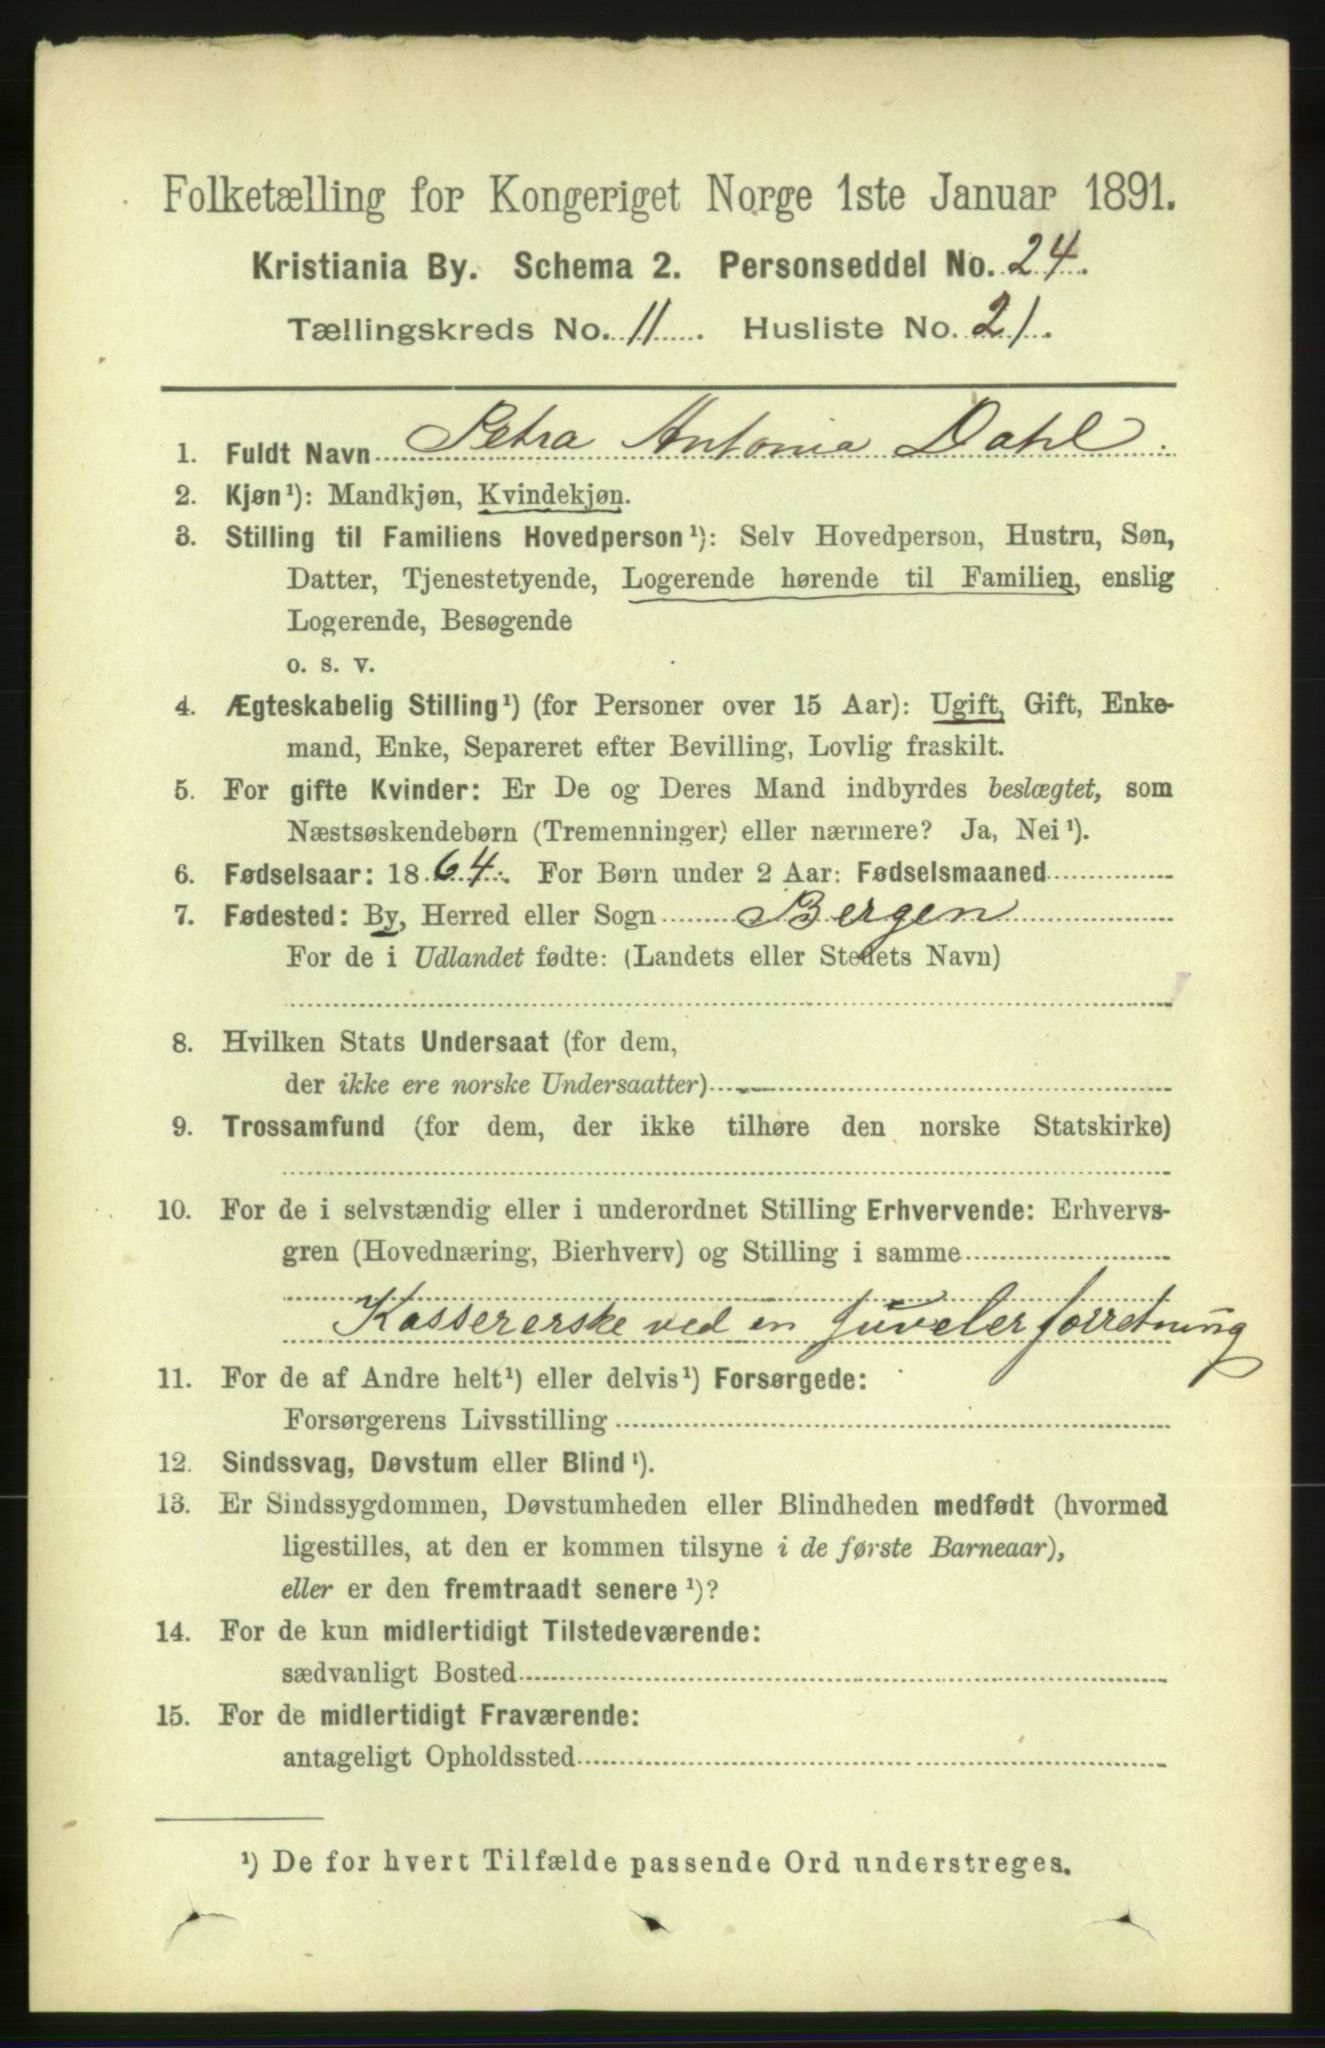 Folketælling for Kongeriget Norge 1ste Januar 1891.
Kristiania By. Schema 2. Personseddel No. 24.
Tællingskreds No. 11. Husliste No. 21.
1. Fuldt Navn Petra Antonia Dahl.
2. Kjøn¹): Mandkjøn, Kvindekjøn.
3. Stilling til Familiens Hovedperson¹): Selv Hovedperson, Hustru, Søn,
Datter, Tjenestetyende, Logerende hørende til Familien, enslig
Logerende, Besøgende
o. s. v.
4. Ægteskabelig Stilling¹) (for Personer over 15 Aar): Ugift, Gift, Enke-
mand, Enke, Separeret efter Bevilling, Lovlig fraskilt.
5. For gifte Kvinder: Er De og Deres Mand indbyrdes beslægtet, som
Næstsøskendebørn (Tremenninger) eller nærmere? Ja, Nei¹).
6. Fødselsaar: 1864. For Børn under 2 Aar: Fødselsmaaned
7. Fødested: By, Herred eller Sogn Bergen
For de i Udlandet fødte: (Landets eller Stedets Navn)
8. Hvilken Stats Undersaat (for dem,
der ikke ere norske Undersaatter)
9. Trossamfund (for dem, der ikke tilhøre den norske Statskirke)
10. For de i selvstændig eller i underordnet Stilling Erhvervende: Erhvervs-
gren (Hovednæring, Bierhverv) og Stilling i samme
Kassererske ved en Juvelerforretning
11. For de af Andre helt¹) eller delvis¹) Forsørgede:
Forsørgerens Livsstilling
12. Sindssvag, Døvstum eller Blind¹).
13. Er Sindssygdommen, Døvstumheden eller Blindheden medfødt (hvormed
ligestilles, at den er kommen tilsyne i de første Barneaar),
eller er den fremtraadt senere¹)?
14. For de kun midlertidigt Tilstedeværende:
sædvanligt Bosted
15. For de midlertidigt Fraværende:
antageligt Opholdssted
¹) De for hvert Tilfælde passende Ord understreges.